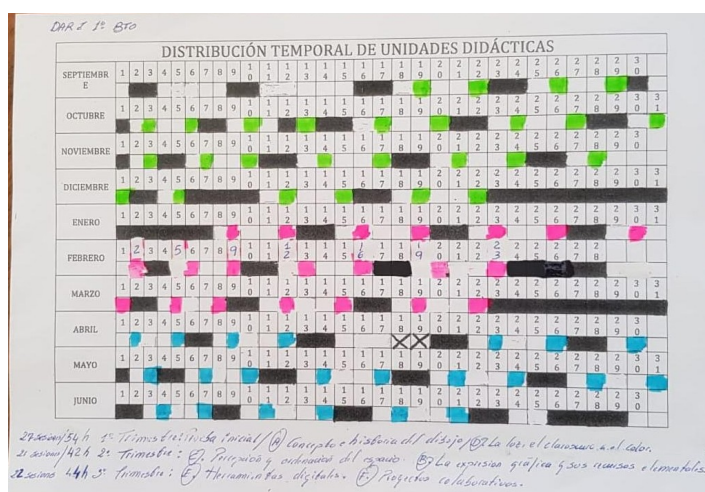 DAR I 1º BTO
DISTRIBUCIÓN TEMPORAL DE UNIDADES DIDÁCTICAS
SEPTIEMBRE 1 2 3 4 5 6 7 8 9 10 11 12 13 14 15 16 17 18 19 20 21 22 23 24 25 26 27 28 29 30
OCTUBRE 1 2 3 4 5 6 7 8 9 10 11 12 13 14 15 16 17 18 19 20 21 22 23 24 25 26 27 28 29 30 31
NOVIEMBRE 1 2 3 4 5 6 7 8 9 10 11 12 13 14 15 16 17 18 19 20 21 22 23 24 25 26 27 28 29 30
DICIEMBRE 1 2 3 4 5 6 7 8 9 10 11 12 13 14 15 16 17 18 19 20 21 22 23 24 25 26 27 28 29 30 31
ENERO 1 2 3 4 5 6 7 8 9 10 11 12 13 14 15 16 17 18 19 20 21 22 23 24 25 26 27 28 29 30 31
FEBRERO 1 2 3 4 5 6 7 8 9 10 11 12 13 14 15 16 17 18 19 20 21 22 23 24 25 26 27 28
MARZO 1 2 3 4 5 6 7 8 9 10 11 12 13 14 15 16 17 18 19 20 21 22 23 24 25 26 27 28 29 30 31
ABRIL 1 2 3 4 5 6 7 8 9 10 11 12 13 14 15 16 17 18 19 20 21 22 23 24 25 26 27 28 29 30
MAYO 1 2 3 4 5 6 7 8 9 10 11 12 13 14 15 16 17 18 19 20 21 22 23 24 25 26 27 28 29 30 31
JUNIO 1 2 3 4 5 6 7 8 9 10 11 12 13 14 15 16 17 18 19 20 21 22 23 24 25 26 27 28 29 30
27 sesiones/54 h 1º Trimestre: Prueba inicial / A Concepto e historia del dibujo / D. La luz, el claroscuro y el color.
21 sesiones/42 h 2º Trimestre: C. Percepción y ordenación del espacio. B. La expresión gráfica y sus recursos elementales.
22 sesiones 44 h 3º Trimestre: E. Herramientas digitales. F. Proyectos colaborativos.